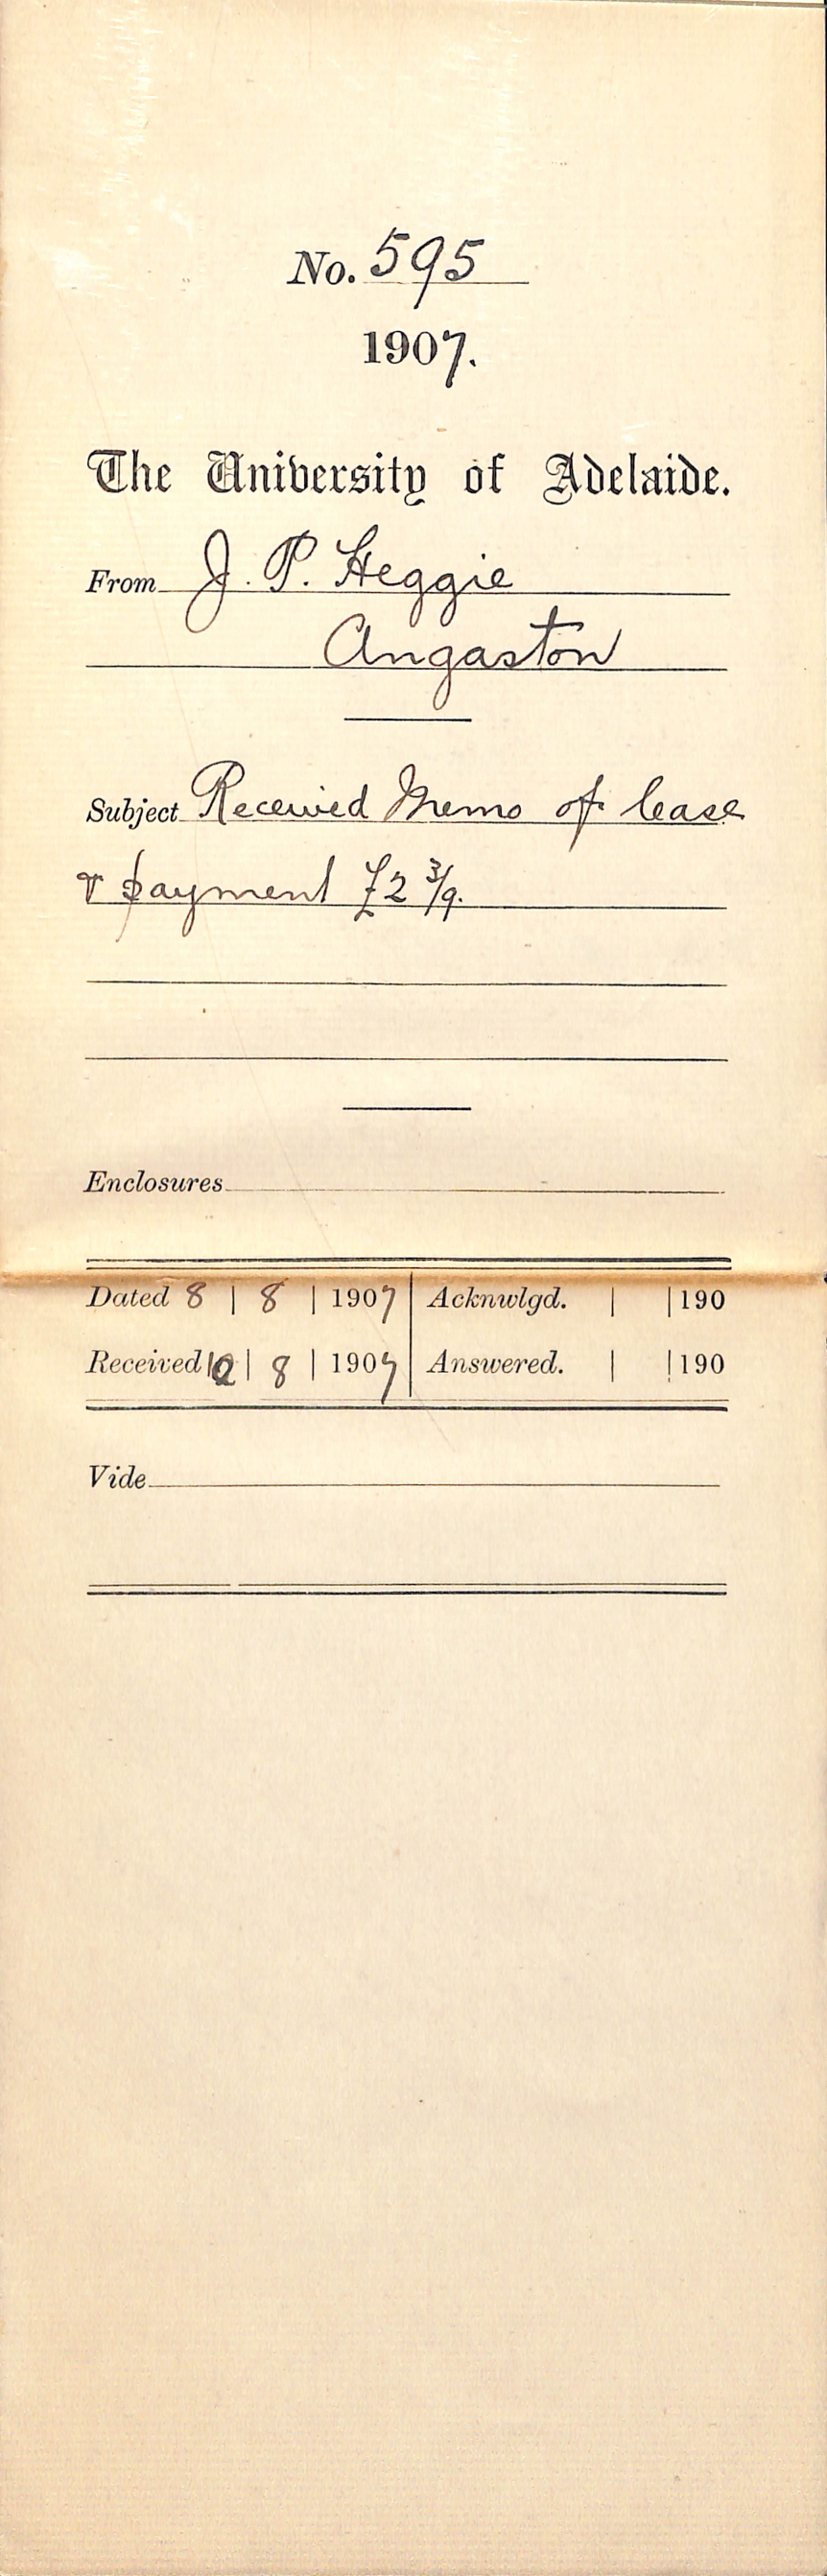 No. 595
1907.
The University of Adelaide.
From J. P. Heggie
Angaston
Subject Received Memo of lease
& payment £2 3/9.
Enclosures
Dated 8 | 8 | 1907 | Acknwlgd. | | 190
Received 10 | 8 | 1907 | Answered. | | 190
Vide